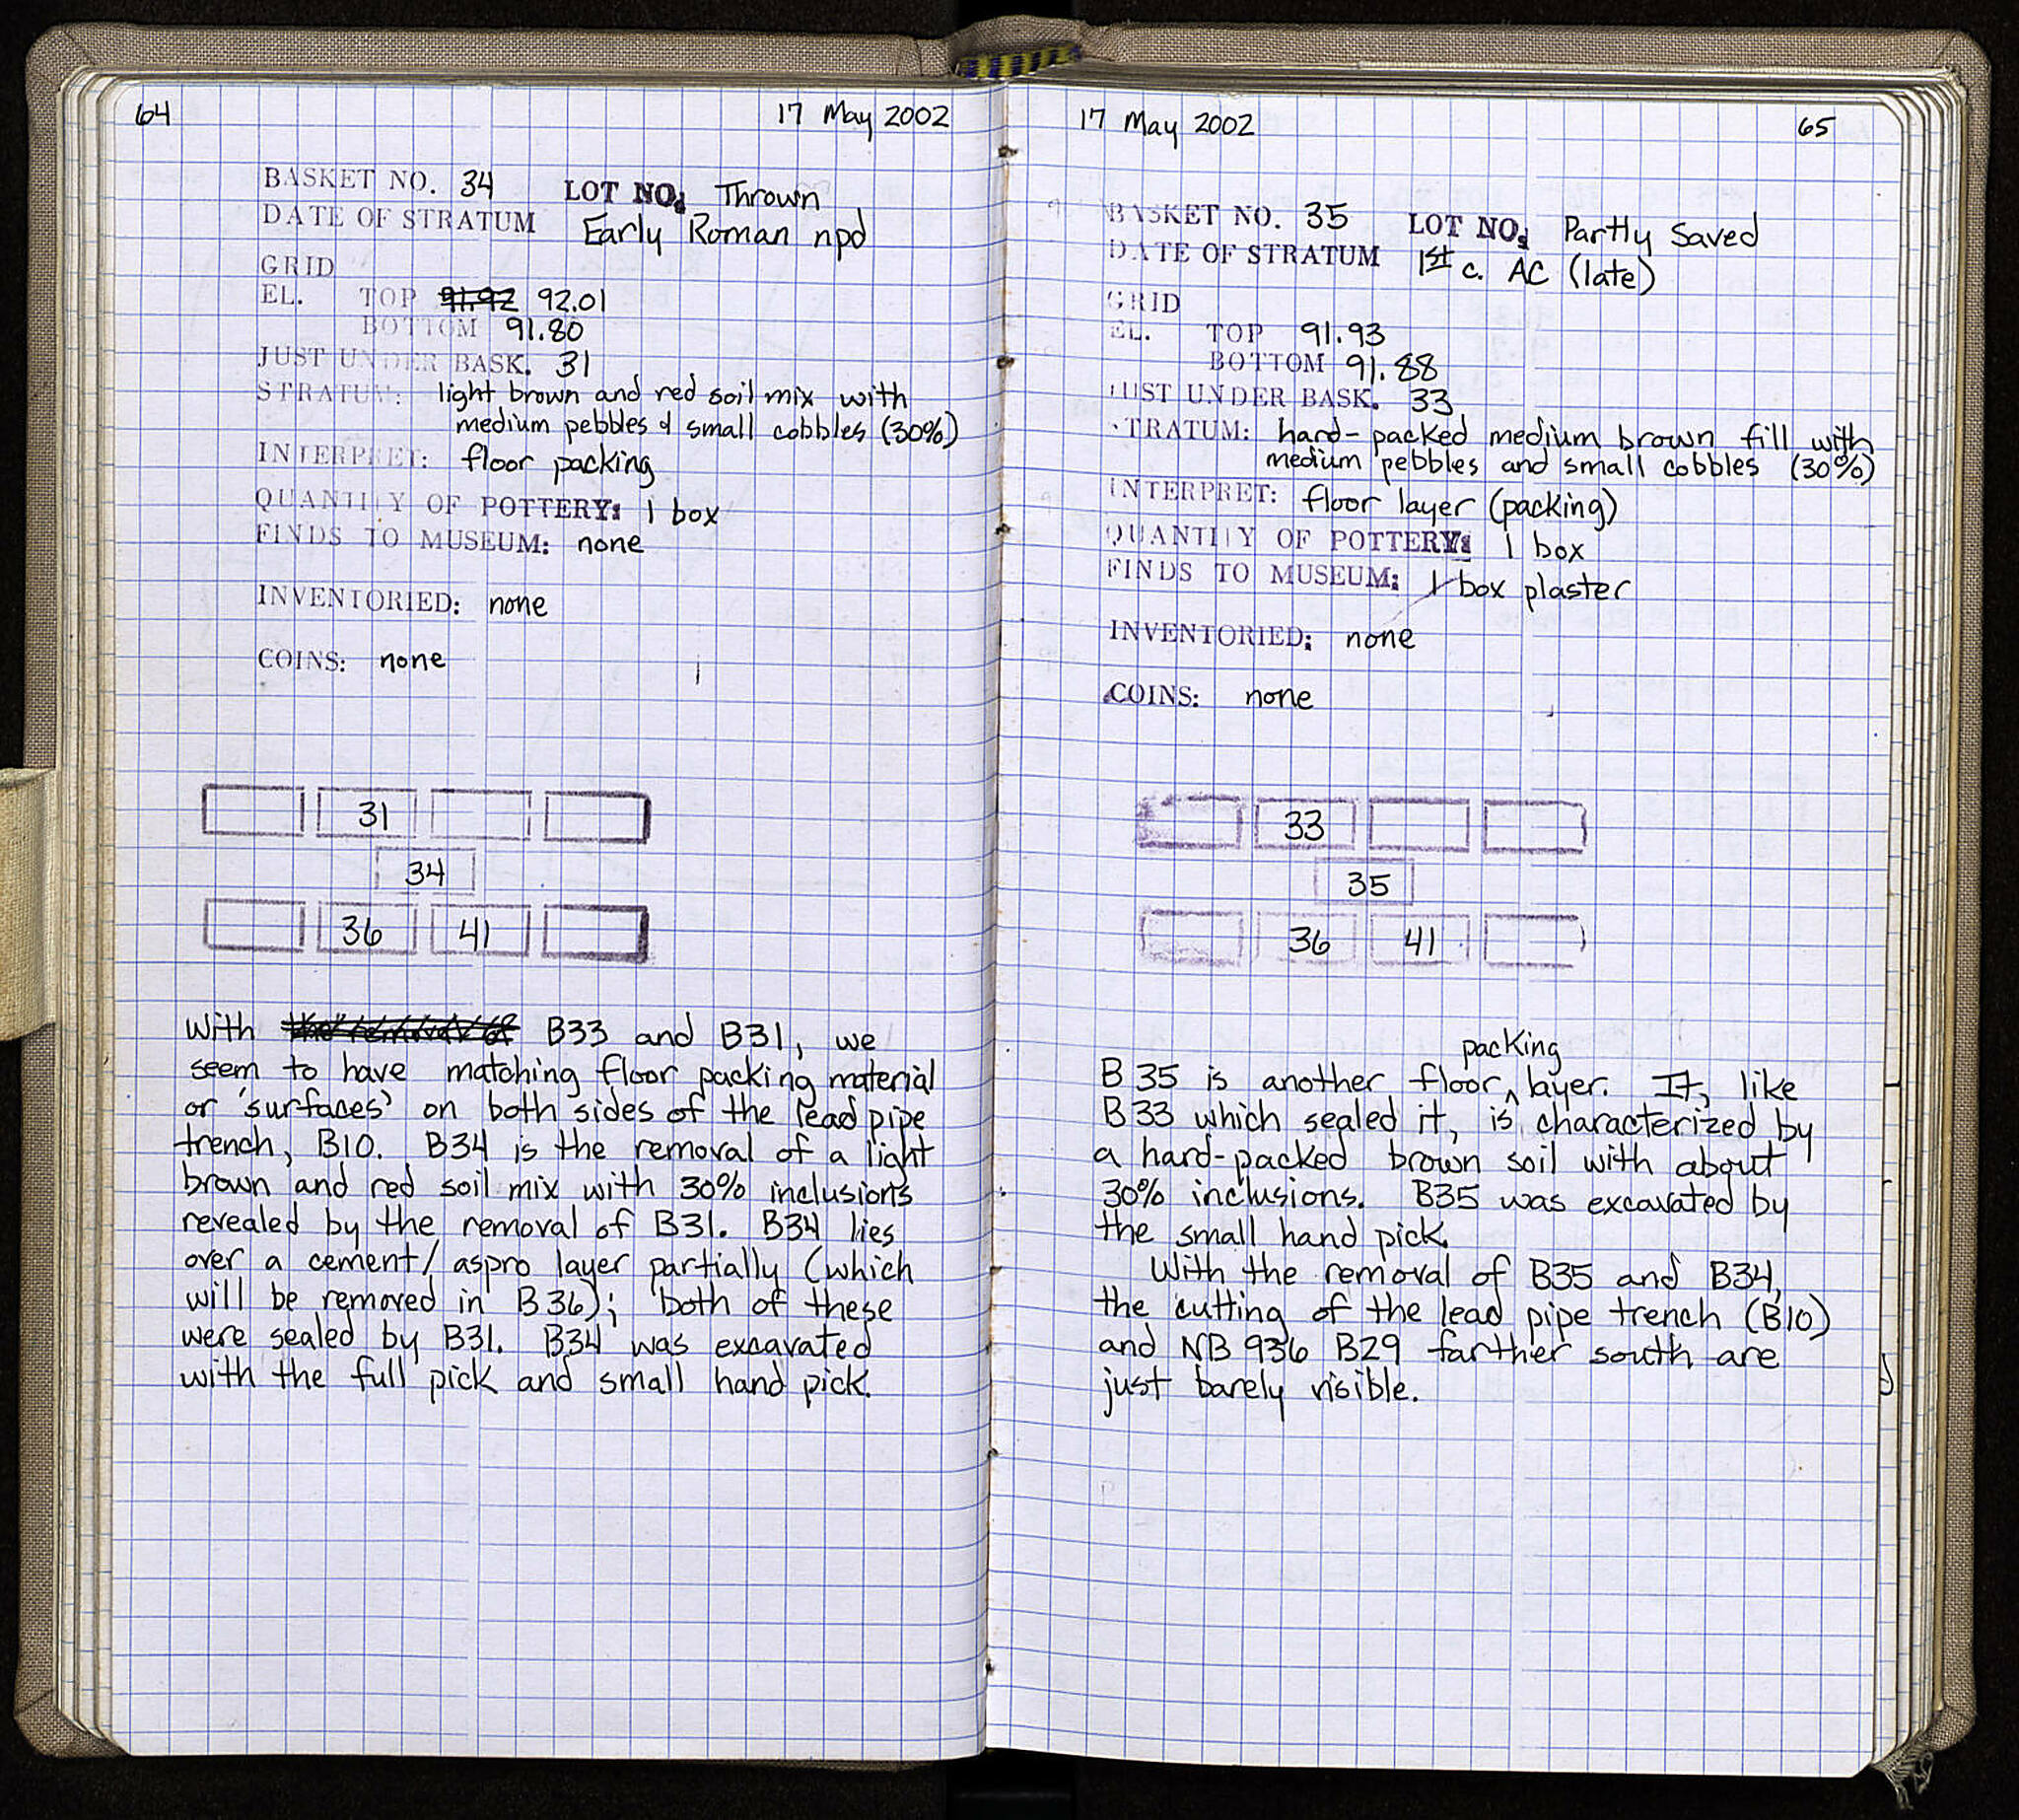 64
17 May 2002
BASKET NO. 34 LOT NO. Thrown
DATE OF STRATUM Early Roman npd
GRID
EL. TOP 91.92 92.01
BOTTOM 91.80
JUST UNDER BASK. 31
STRATUM: light brown and red soil mix with
medium pebbles & small cobbles (30%)
INTERPRET: floor packing
QUANTITY OF POTTERY: 1 box
FINDS TO MUSEUM: none
INVENTORIED: none
COINS: none
31
34
36 41
With the removal of B33 and B31, we
seem to have matching floor packing material
or 'surfaces' on both sides of the lead pipe
trench, B10. B34 is the removal of a light
brown and red soil mix with 30% inclusions
revealed by the removal of B31. B34 lies
over a cement/aspro layer partially (which
will be removed in B36); both of these
were sealed by B31. B34 was excavated
with the full pick and small hand pick.
17 May 2002
65
BASKET NO. 35 LOT NO. Partly Saved
DATE OF STRATUM 1st c. AC (late)
GRID
EL. TOP 91.93
BOTTOM 91.88
JUST UNDER BASK. 33
STRATUM: hard-packed medium brown fill with
medium pebbles and small cobbles (30%)
INTERPRET: floor layer (packing)
QUANTITY OF POTTERY: 1 box
FINDS TO MUSEUM: 1 box plaster
INVENTORIED: none
COINS: none
33
35
36 41
packing
B35 is another floor ^ layer. It, like
B33 which sealed it, is characterized by
a hard-packed brown soil with about
30% inclusions. B35 was excavated by
the small hand pick.
With the removal of B35 and B34,
the cutting of the lead pipe trench (B10)
and NB 936 B29 farther south are
just barely visible.